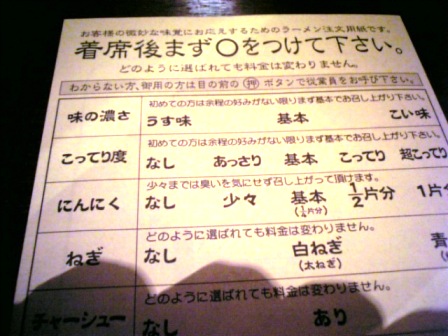 お客様の微妙な味覚にお応えするためのラーメン注文用紙です。
着席後まず〇をつけて下さい。
どのように選ばれても料金は変わりません。
わからない方、御用の方は目の前の㊞ボタンで従業員をお呼び下さい。
味の濃さ
初めての方は余程の好みがない限りまず基本でお召し上がり下さい。
うす味 基本 こい味
こってり度
初めての方は余程の好みがない限りまず基本でお召し上がり下さい。
なし あっさり 基本 こってり 超こってり
にんにく
少々までは臭いを気にせず召し上がって頂けます。
なし 少々 基本 1/2片分 1片
(1/4片分)
ねぎ
どのように選ばれても料金は変わりません。
なし 白ねぎ 青
(太ねぎ)
チャーシュー
どのように選ばれても料金は変わりません。
なし あり